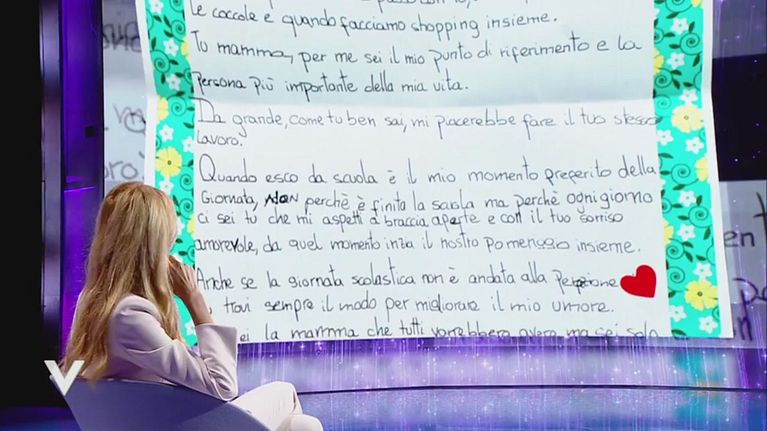 le coccole e quando facciamo shopping insieme.
Tu mamma, per me sei il mio punto di riferimento e la
persona più importante della mia vita.
Da grande, come tu ben sai, mi piacerebbe fare il tuo stesso
lavoro.
Quando esco da scuola è il mio momento preferito della
giornata, non perchè è finita la scuola ma perchè ogni giorno
ci sei tu che mi aspetti a braccia aperte e con il tuo sorriso
amorevole, da quel momento inzia il nostro pomeriggio insieme.
Anche se la giornata scolastica non è andata alla
trovi sempre il modo per migliorare il mio umore.
la mamma che tutti vorrebbero avere ma sei solo
V